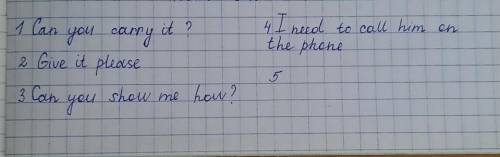 1 Can you carry it ?
2 Give it please
3 Can you show me how?
4. I need to call him on
the phone
5